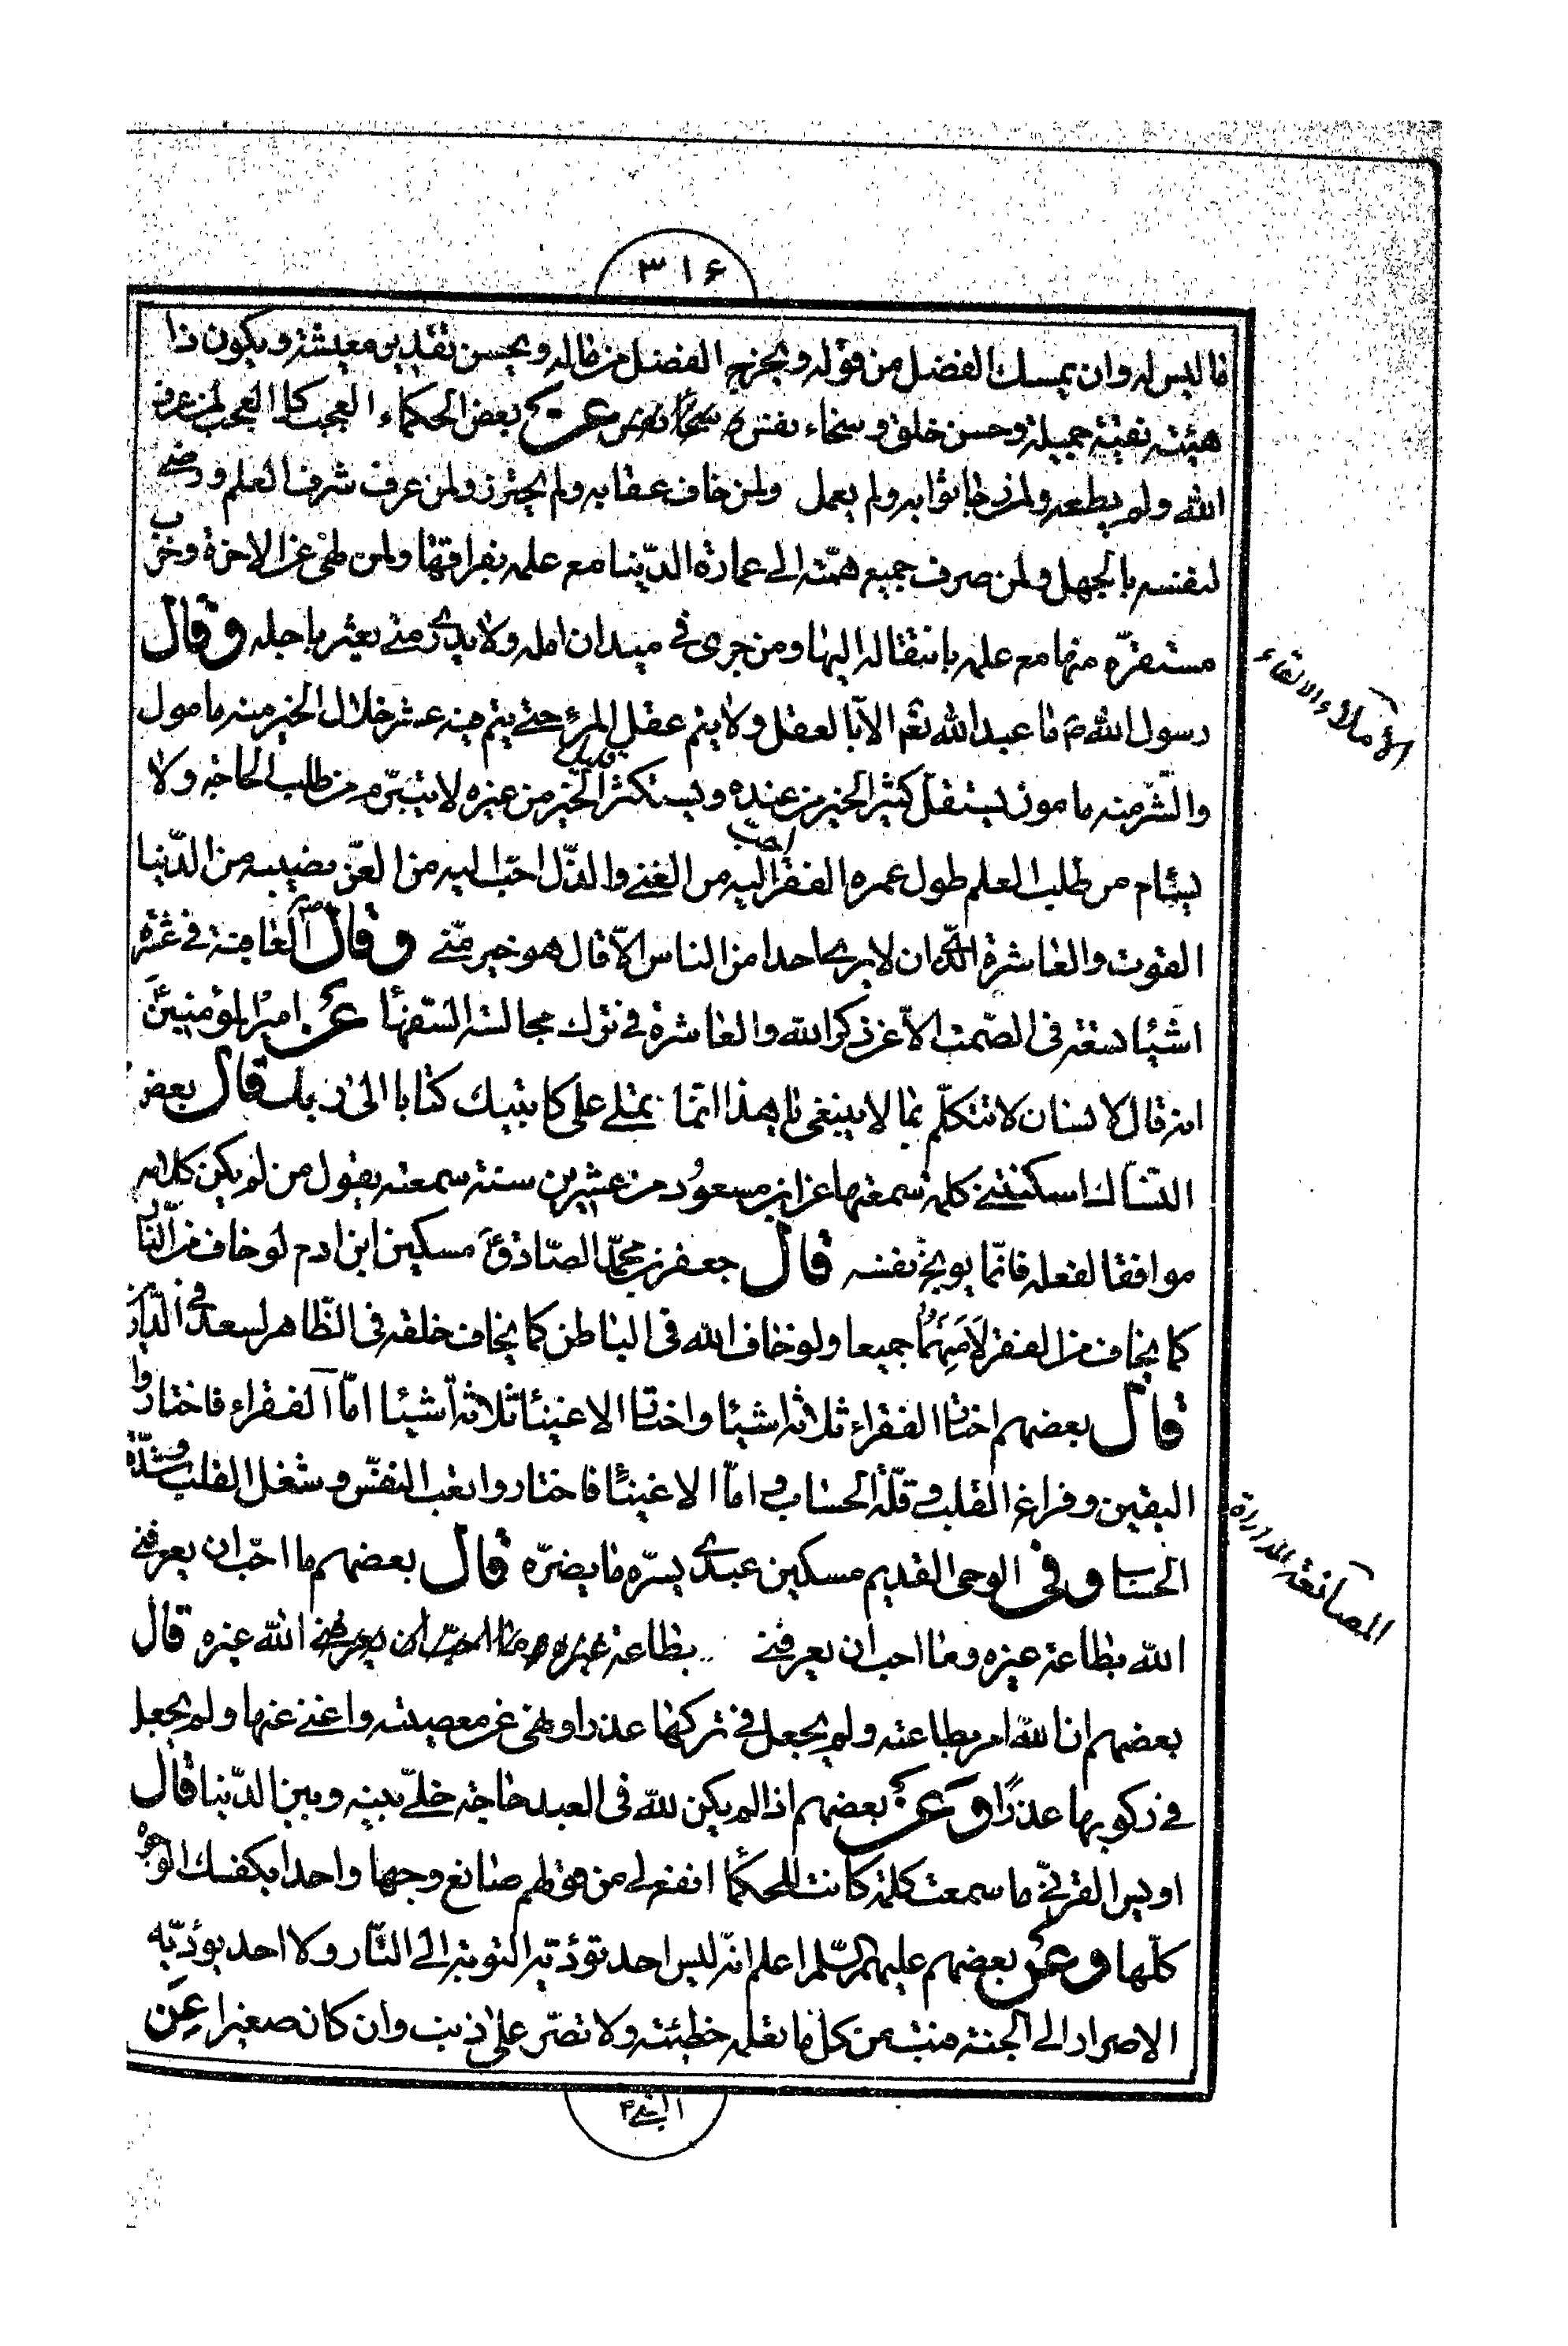 ۳۱۶
ما ليس له وان يمسك الفضل من قوله ويخرج الفضل من ماله ويحسن تقدير معيشته ويكون ذا
هيئة نقيّة جميلة وحسن خلق وسخاء نفس عن بعض الحكماء العجب كل العجب لمن عرف
الله ولم يطعه ولمن رجا ثوابه ولم يعمل ولمن خاف عقابه ولم يحترز ولمن عرف شرف العلم ورضى
لنفسه بالجهل ولمن صرف جميع همّته الى عمارة الدّنيا مع علمه بفراقها ولمن لهى عن الاخرة وخرّب
مستقرّه منها مع علمه بانتقاله اليها ومن جرى فى ميدان امله ولا يدرى متى يعثر باجله وقال
رسول الله ص ما عبد الله تعم الا بالعقل ولا يتم عقل المرء حتى يتم فيه عشر خلال الخير منه مامول
والشّر منه مامون يستقل كثير الخير من عنده ويستكثر قليل الخير من غيره لا يتبرّم من طلب الحاجة ولا
يسئام من طلب العلم طول عمره الفقر احبّ اليه من الغنى والذّل احبّ اليه من العزّ نصيبه من الدّنيا
القوت والعاشرة انّه ان لا يرى احدا من الناس الّا قال هو خير منّى وقال ص العافية فى عشرة
اشيا تسعة فى الصّمت الّا عن ذكر الله والعاشرة فى ترك مجالسة السّفها عن امير المؤمنين ع
انه قال لانسان لا تتكلّم بما لا ينبغى يا هذا انّما تملى على كاتبيك كتابا الى ربك قال بعض
النسّاك اسكتتنى كلمة سمعتها عن ابن مسعود من عشرين سنة سمعته يقول من لم يكن كلامه
موافقا لفعله فانّما يوبخ نفسه قال جعفر بن محمّد الصّادق ع مسكين ابن ادم لو خاف من النّار
كما يخاف من الفقر لأمنهما جميعا ولو خاف الله فى الباطن كما يخاف خلقه فى الظّاهر لسعد فى الدّارين
قال بعضهم اختار الفقراء ثلاثة اشيا واختار الاغنيا ثلاثة اشيا امّا الفقراء فاختاروا
اليقين وفراغ القلب وقلّة الحساب وامّا الاغنيا فاختاروا تعب النفس وشغل القلب وشدّة
الحساب وفى الوحى القديم مسكين عبدى يسرّه ما يضرّه قال بعضهم ما احبّ ان يعرفنى
الله بطاعة غيره وما احب ان يعرفنى بطاعة الله غيره قال
بعضهم ان الله امر بطاعته ولم يجعل فى تركها عذرا ونهى عن معصيته واغنى عنها ولم يجعل
فى ركوبها عذرًا وعن بعضهم اذا لم يكن لله فى العبد حاجة خلّى بينه وبين الدّنيا قال
اويس القرنى ما سمعت كلمة كانت للحكما انفع لى من قولهم صانع وجها واحدا يكفيك الوجوه
كلّها وعن بعضهم عليهم السّلم اعلم انّه ليس احد تؤدّيه التوبة الى النّار ولا احد يؤدّيه
الاصرار الى الجنة منب من كل ما تعلمه خطيئته ولا تصرّ على ذنب وان كان صغيرا عن
النبى م
المصانعة المداراة